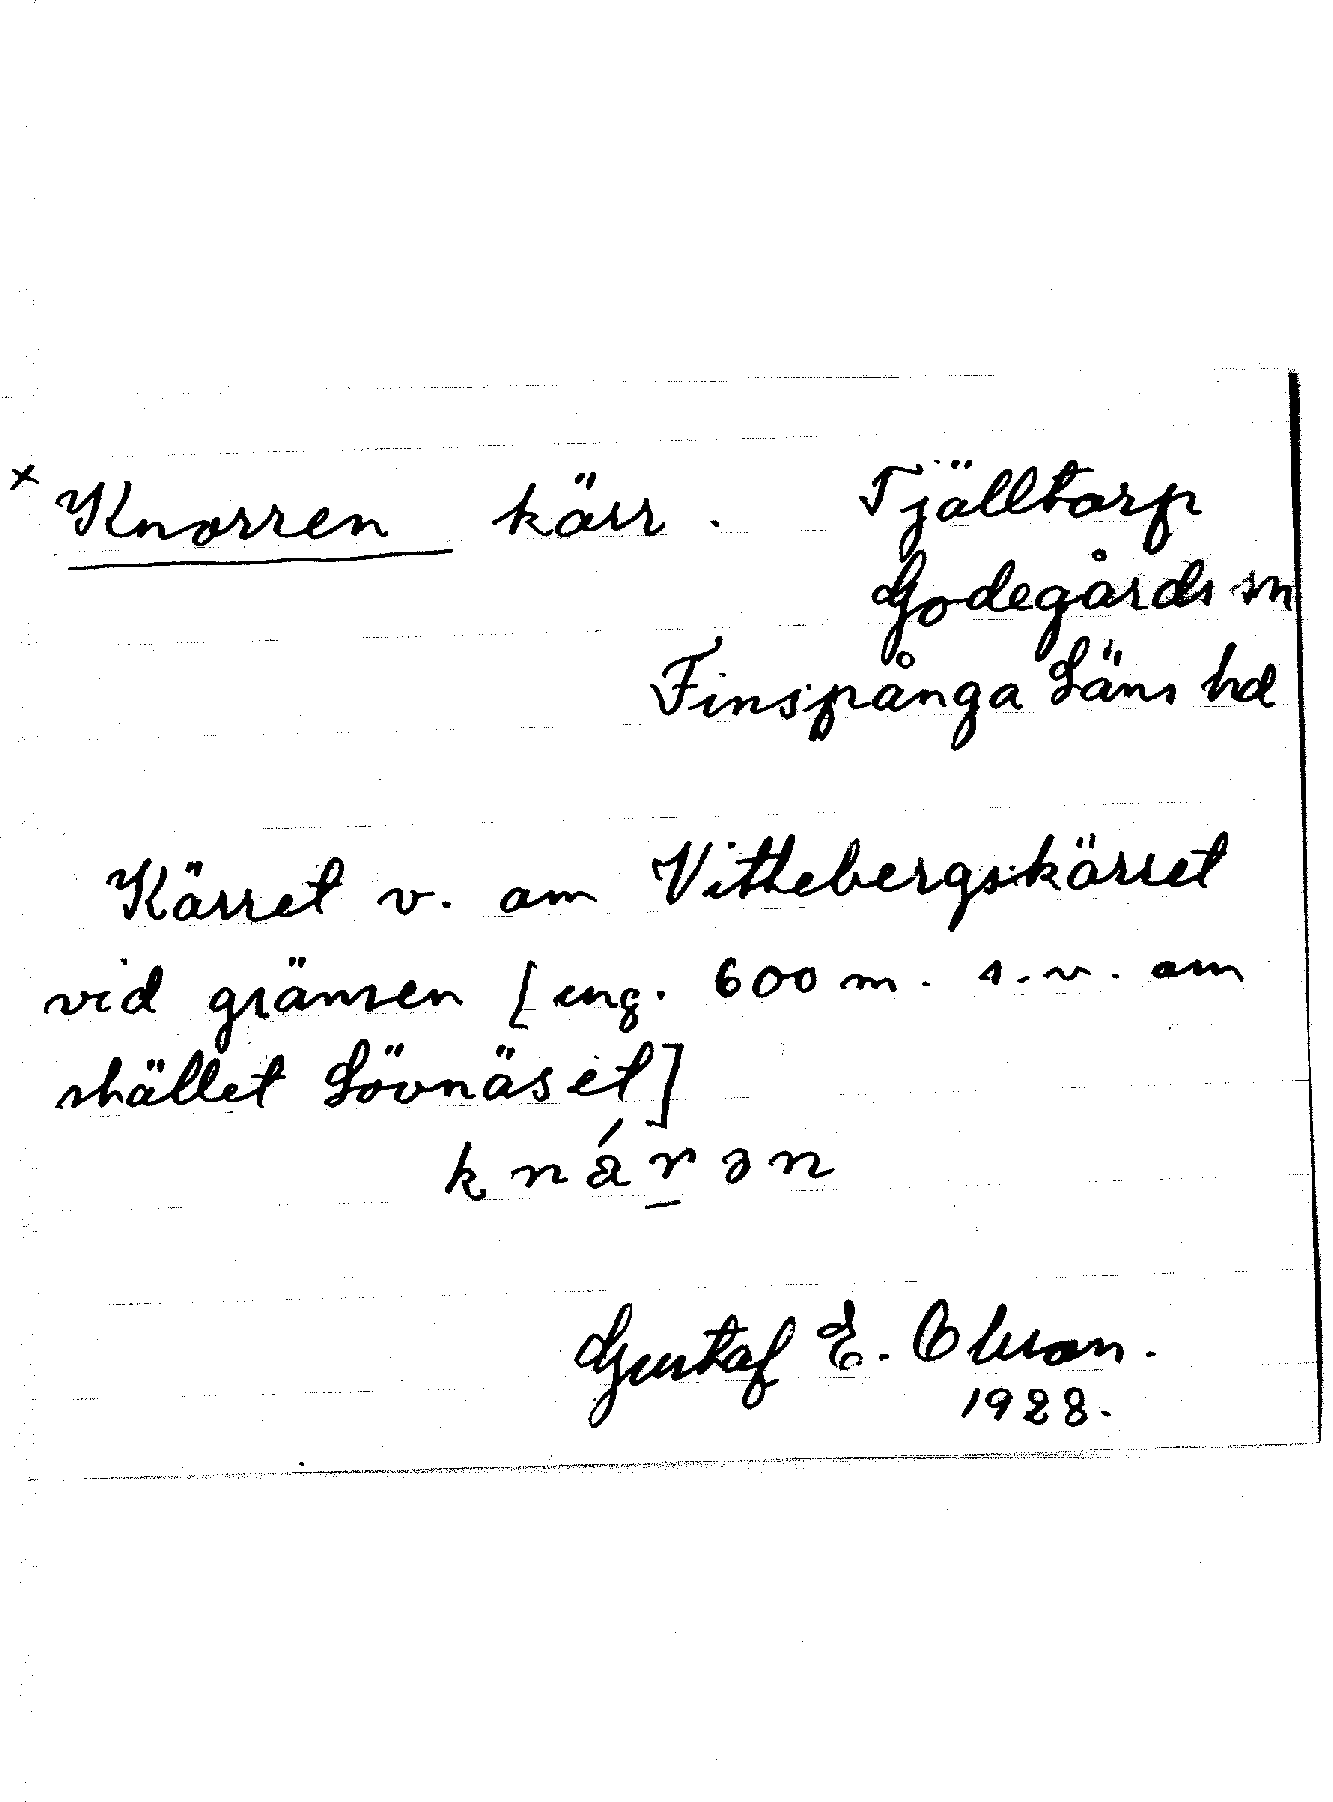 x Knorren kärr. Tjälltorp
Godegårds sn
Finspånga Läns hd
Kärret v. om Vittebergskärret
vid gränsen [ung. 600 m. s.v. om
skället Lövnäset]
knárən
Gustaf E. Olsson.
1928.